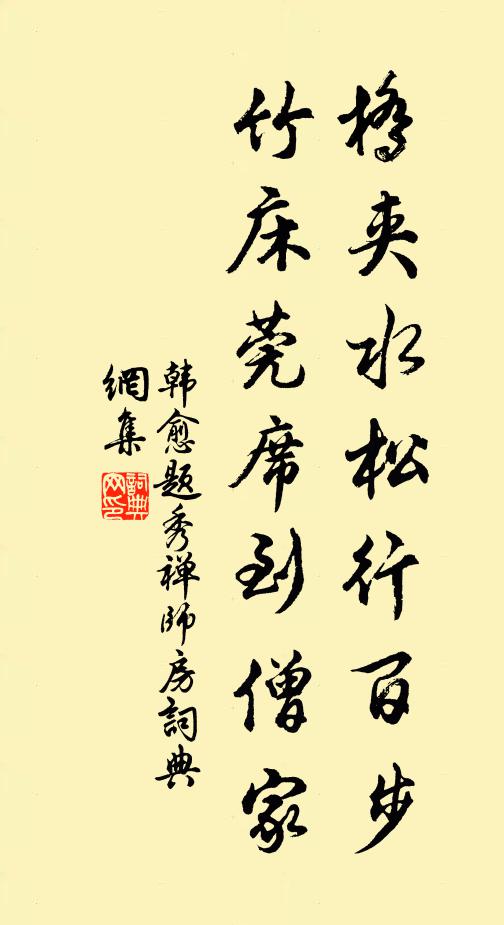 橋夾水松行百步
竹床莞席到僧家
韩愈题秀禅师房詞典
網集
詞典
网印